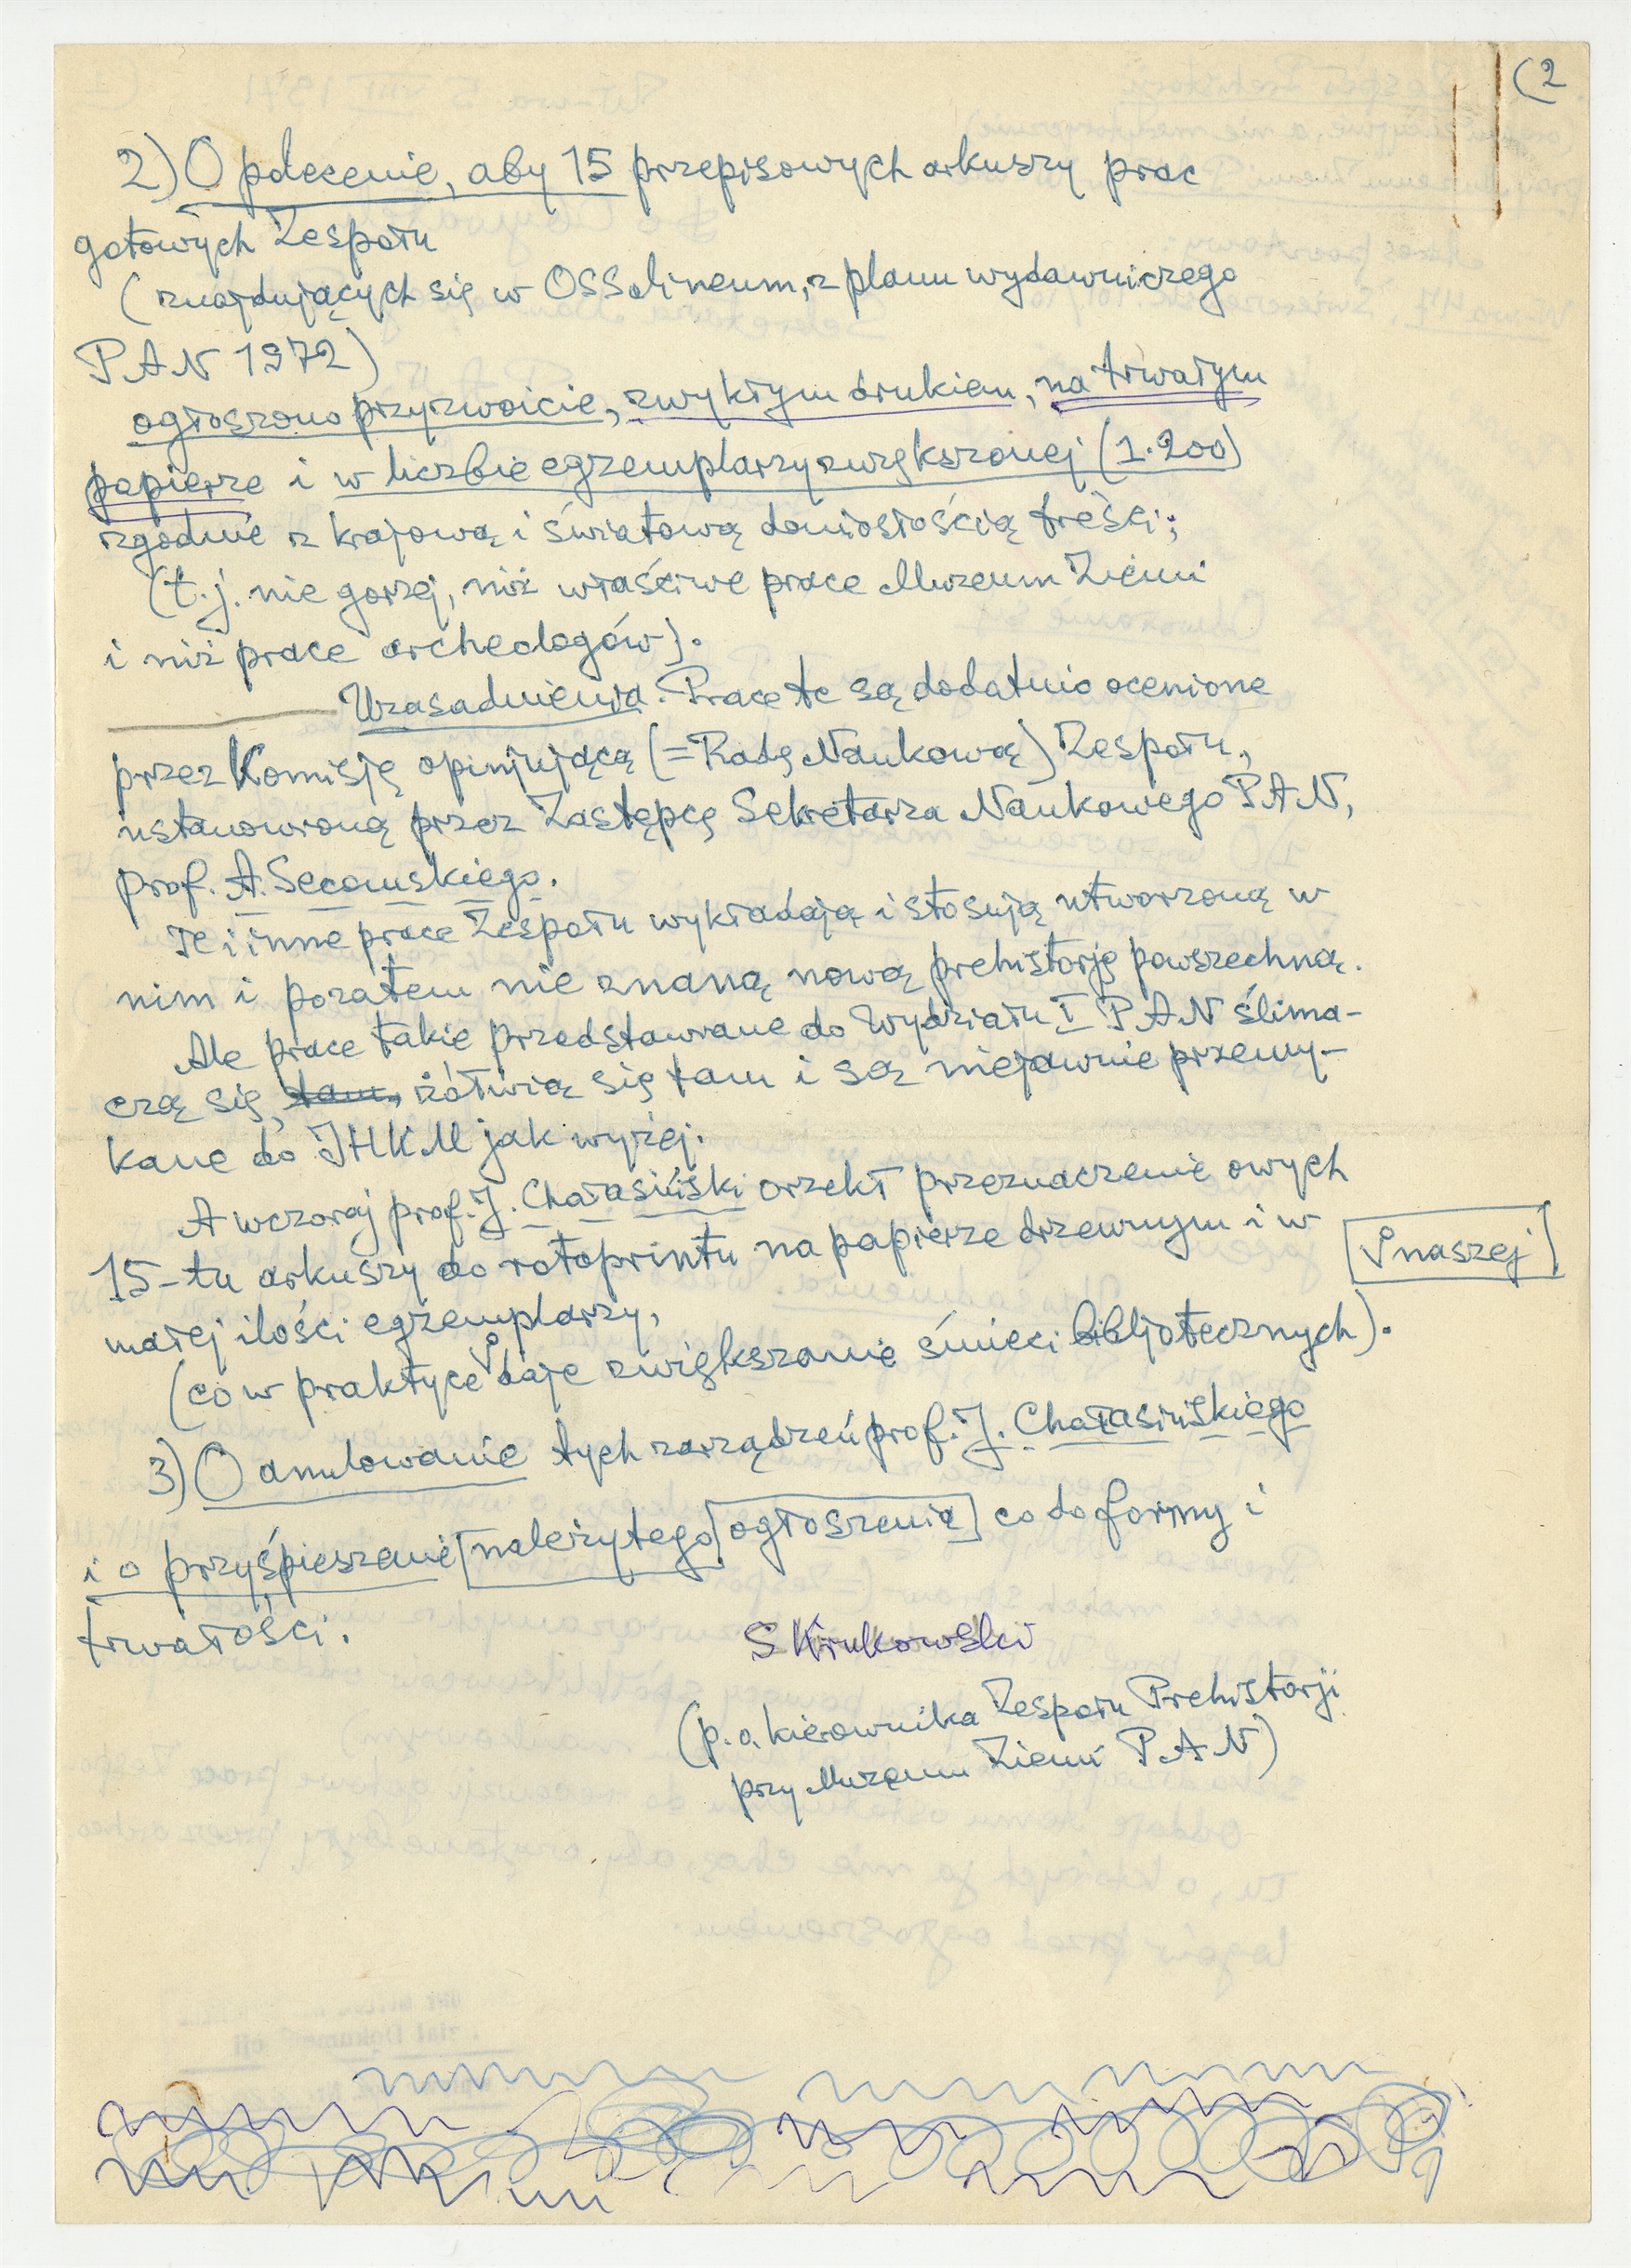 (2
2) O polecenie, aby 15 przepisowych arkuszy prac
gotowych Zespołu
(znajdujących się w OSSolineum, z planu wydawniczego
PAN 1972)
ogłoszono przyzwoicie, zwykłym drukiem, na trwałym
papierze i w liczbie egzemplarzy zwiększonej (1.200)
zgodnie z krajową i światową doniosłością treści;
(t.j. nie gorzej, niż właściwe prace Muzeum Ziemi
i niż prace archeologów).
Uzasadnienia. Prace te są dodatnio ocenione
przez Komisję opinjującą (=Radę Naukową) Zespołu,
ustanowioną przez Zastępcę Sekretarza Naukowego PAN,
prof. A. Secomskiego.
Te i inne prace Zespołu wykładają i stosują utworzoną w
nim i pozatem nie znaną nową prehistorję powszechną.
Ale prace takie przedstawiane do Wydziału I PAN ślima-
czą się, tam, żółwią się tam i są niejawnie przemy-
kane do IHKM jak wyżej.
A wczoraj prof. J. Chałasiński orzekł przeznaczenie owych
15-tu arkuszy do rotoprintu na papierze drzewnym i w
małej ilości egzemplarzy,
naszej
(co w praktyce daje zwiększanie śmieci bibljotecznych).
3) O anulowanie tych zarządzeń prof. J. Chałasińskiego
i o przyśpieszenie należytego ogłoszenia co do formy i
trwałości.
S Krukowski
(p.o. kierownika Zespołu Prehistorji
przy Muzeum Ziemi PAN)